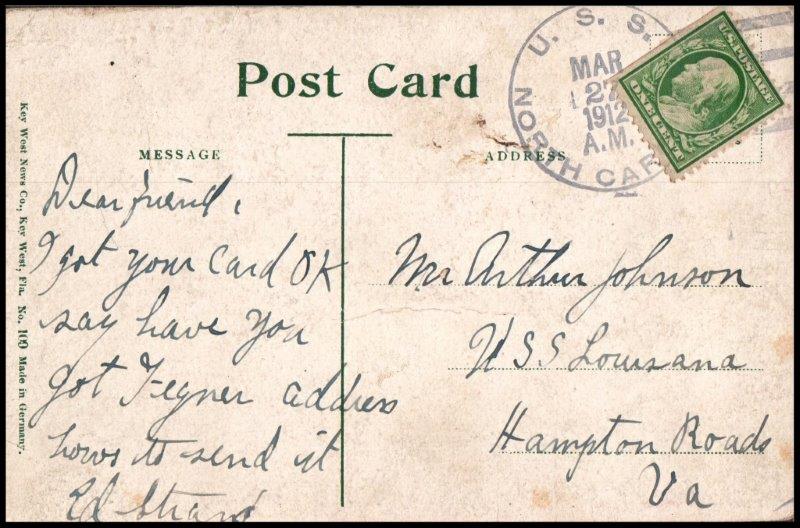 Post Card
MESSAGE
ADDRESS
U. S. S.
NORTH CAR
MAR
27
1912
A.M.
U.S. POSTAGE
ONE CENT
Key West News Co., Key West, Fla. No. 109 Made in Germany.
Dear friend,
I got your card OK
say have you
got Fegner address
hows to send it
Ed Strand
Mr Arthur Johnson
USS Louisana
Hampton Roads
Va